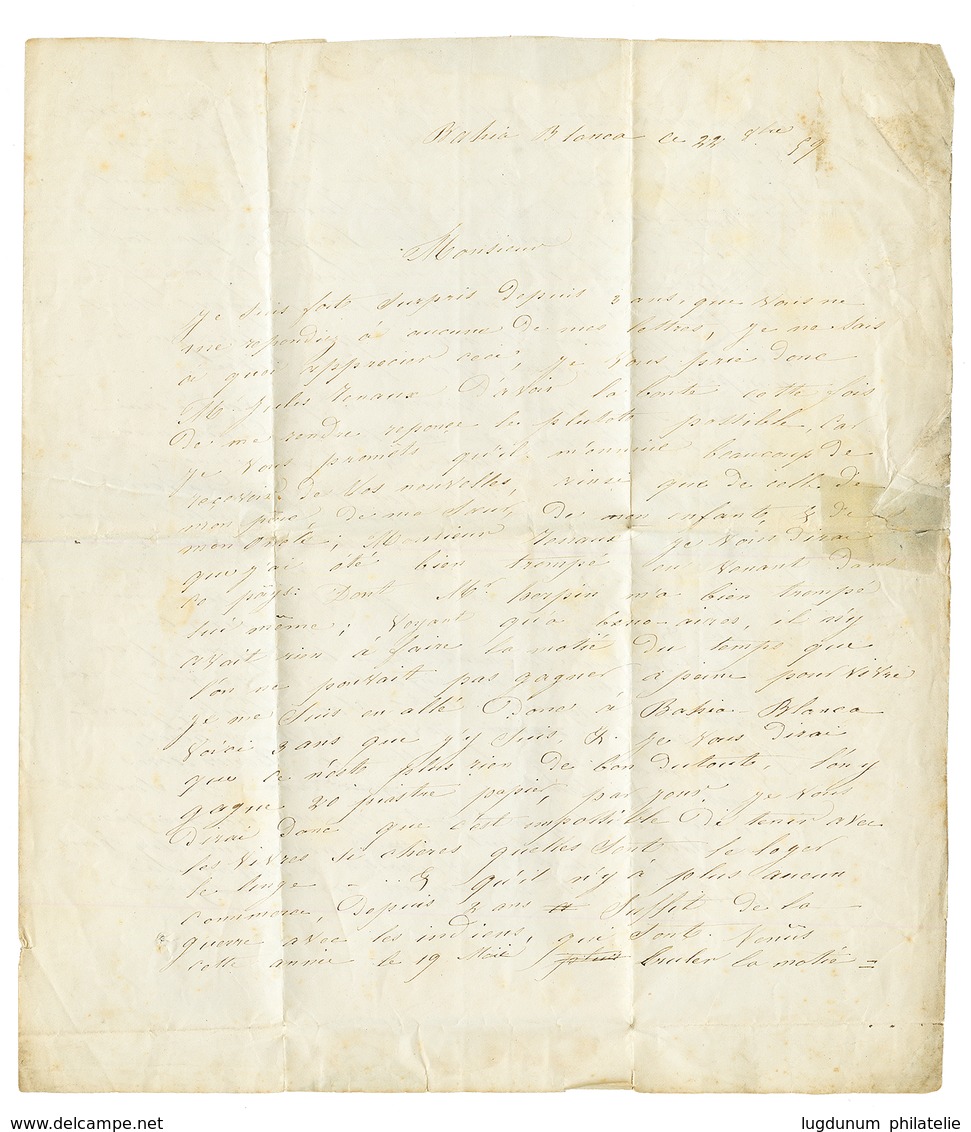 Bahia Blanca ce 22 9bre 59
Monsieur
Je suis fort surpris depuis 2 ans, que vous ne
me repondiez à aucune de mes lettres, je ne sais
à quoi apprecier ceci, je vous prie donc
Mr. Jules Tenaux D'avoir la bonté cette fois
De me rendre reponce le plutôt possible, Car
je vous promets qu'il m'ennuie beaucoup de
reçevoir de vos nouvelles, ainsi que de celle de
mon père De ma Sœur, De mon enfant, & de
mon côté; Monsieur Tenaux je vous Dirai
que j'ai été bien trompé en venant Dans
ce pays: Dont Mr. herpin m'a bien trompé
lui même; Voyant qu'à benos aires, il n'y
avait rien à faire la motié Du temps que
l'on ne pouvait pas gagner à peine pour vivre
je me suis en allé Donc à Bahia-Blanca
Voici 3 ans que j'y suis, & je vous Dirai
que ce n'este plus rien De bon Dutoute, l'on y
gagne 20 piastre papier, par jour. Je vous
Dirai Donc que c'est impossible De tenir avec
les vivres si chères quelles sont le loger
le linge - .. & qu'il n'y à plus aucun
Commerce, Depuis 2 ans Suffit de la
guerre avec les indiens, qui sont Venûs
cette année le 19 Mai bruler la motié =
www.delcampe.net
lugdunum philatelie